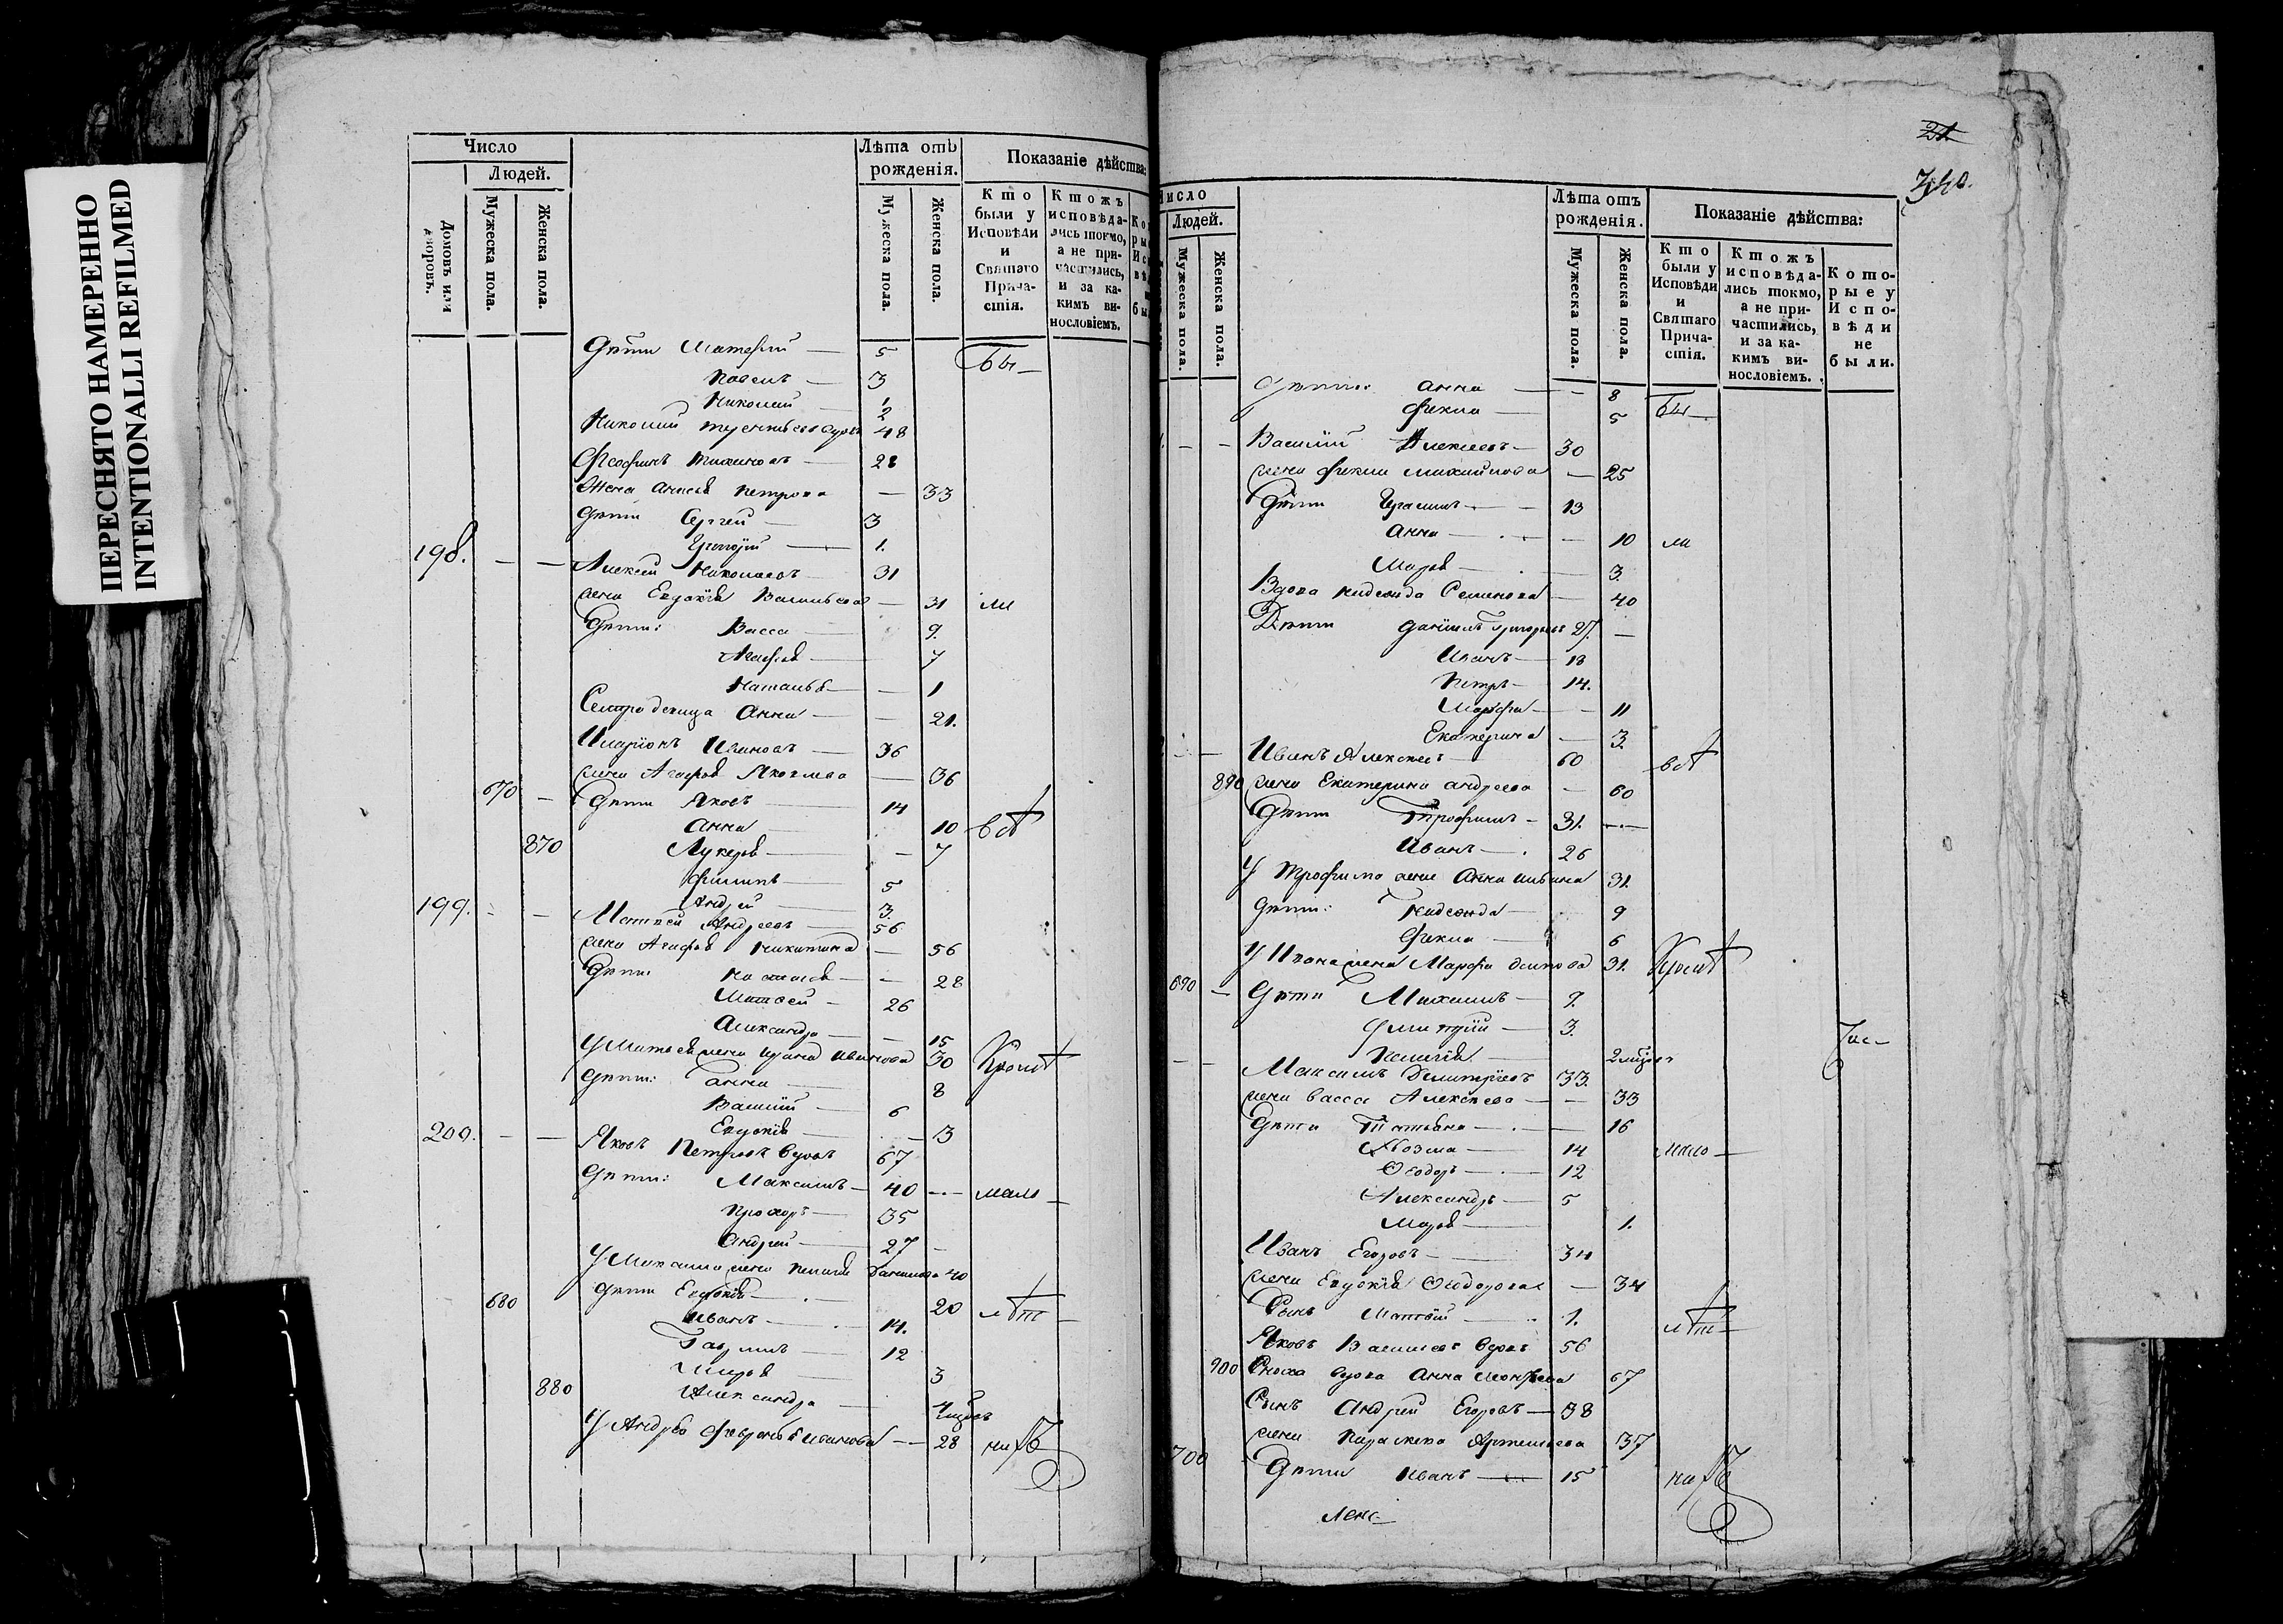 ПЕРЕСНЯТО НАМЕРЕННО
INTENTIONALLI REFILMED
Число
Людей.
Домовъ или дворовъ.
Мужеска пола.
Женска пола.
Лѣта отъ рожденія.
Мужеска пола.
Женска пола.
Показаніе дѣйства:
Кто были у Исповѣди и Святаго Причастія.
Ктожъ исповѣдались токмо, а не причастились, и за какимъ винословіемъ.
Дѣти 5 бы
Павелъ 3
Николай
Николай 48
28
Жена Петрова — 33
Дѣти Сергей 3
Григорій 1.
198. — — Алексей Николаевъ 31
жена Евдокія Васильева — 31 ли
Дѣти: Васса 9.
Агафья 7
Наталья — 1
Сестра девица Анна — 21.
Иларіонъ Ивановъ 36
жена Агафья Яковлева — 36
670 — Дѣти Яковъ 14
Анна 10
870 Лукерья — 7
Филипъ 5
Андрей 3.
199. - — Матвей Андреевъ 56
жена Агафья Никитина — 56
Дѣти — 28
Матвей 26
Александра — 15
У Матвея жена Ирина Иванова 30
Дѣти: Анна 8
Василій 6
Евдокія — 3
200. — — Яковъ Петровъ вдовъ 67
Дѣти: Максимъ 40 мало
Прохоръ 35
Андрей 27
У Максима жена Данилова 40
680 Дѣти Евдокія 20
Иванъ 14.
Гаврилъ 12
3
880 Александра
У Андрея Февронья Иванова — 28
21.
340.
Число
Людей.
Мужеска пола.
Женска пола.
Лѣта отъ рожденія.
Мужеска пола.
Женска пола.
Показаніе дѣйства:
Кто были у Исповѣди и Святаго Причастія.
Ктожъ исповѣдались токмо, а не причастились, и за какимъ винословіемъ.
Которые у Исповѣди не были.
Дѣти: Анна — 8
Фекла 5 бы
— — Василій Алексеевъ 30
жена Фекла Михайлова — 25
Дѣти Герасимъ 13
Анна — 10 ли
Марья — 3.
Вдова Надежда Семенова — 40
Дѣти Данилъ Григорьевъ 27. —
Иванъ 18
Петръ 14.
Марфа — 11
Екатерина — 3.
— — Иванъ Алексеевъ 60
890 жена Екатерина Андреева — 60
Дѣти Трофимъ 31.
Иванъ 26
У Трофима жена Анна 31.
Дѣти: Надежда 9
Фекла 6
У Ивана жена Марфа 31.
690 — Дѣти Михаилъ 9.
Дмитрій 3.
Пелагія
— Максимъ Димитріевъ 33.
жена Васса Алексеева — 33
Дѣти Татьяна — 16
Козма 14 мало
Ѳеодоръ 12
Александръ 5
Марья 1.
Иванъ Егоровъ 34
жена Евдокія Ѳеодорова — 34
Сынъ Матвій 1.
Яковъ вдовъ 56
900 Сноха вдова Анна 67
Сынъ Андрей Егоровъ 38
жена Параскева Артемьева 37
700 Дѣти Иванъ 15